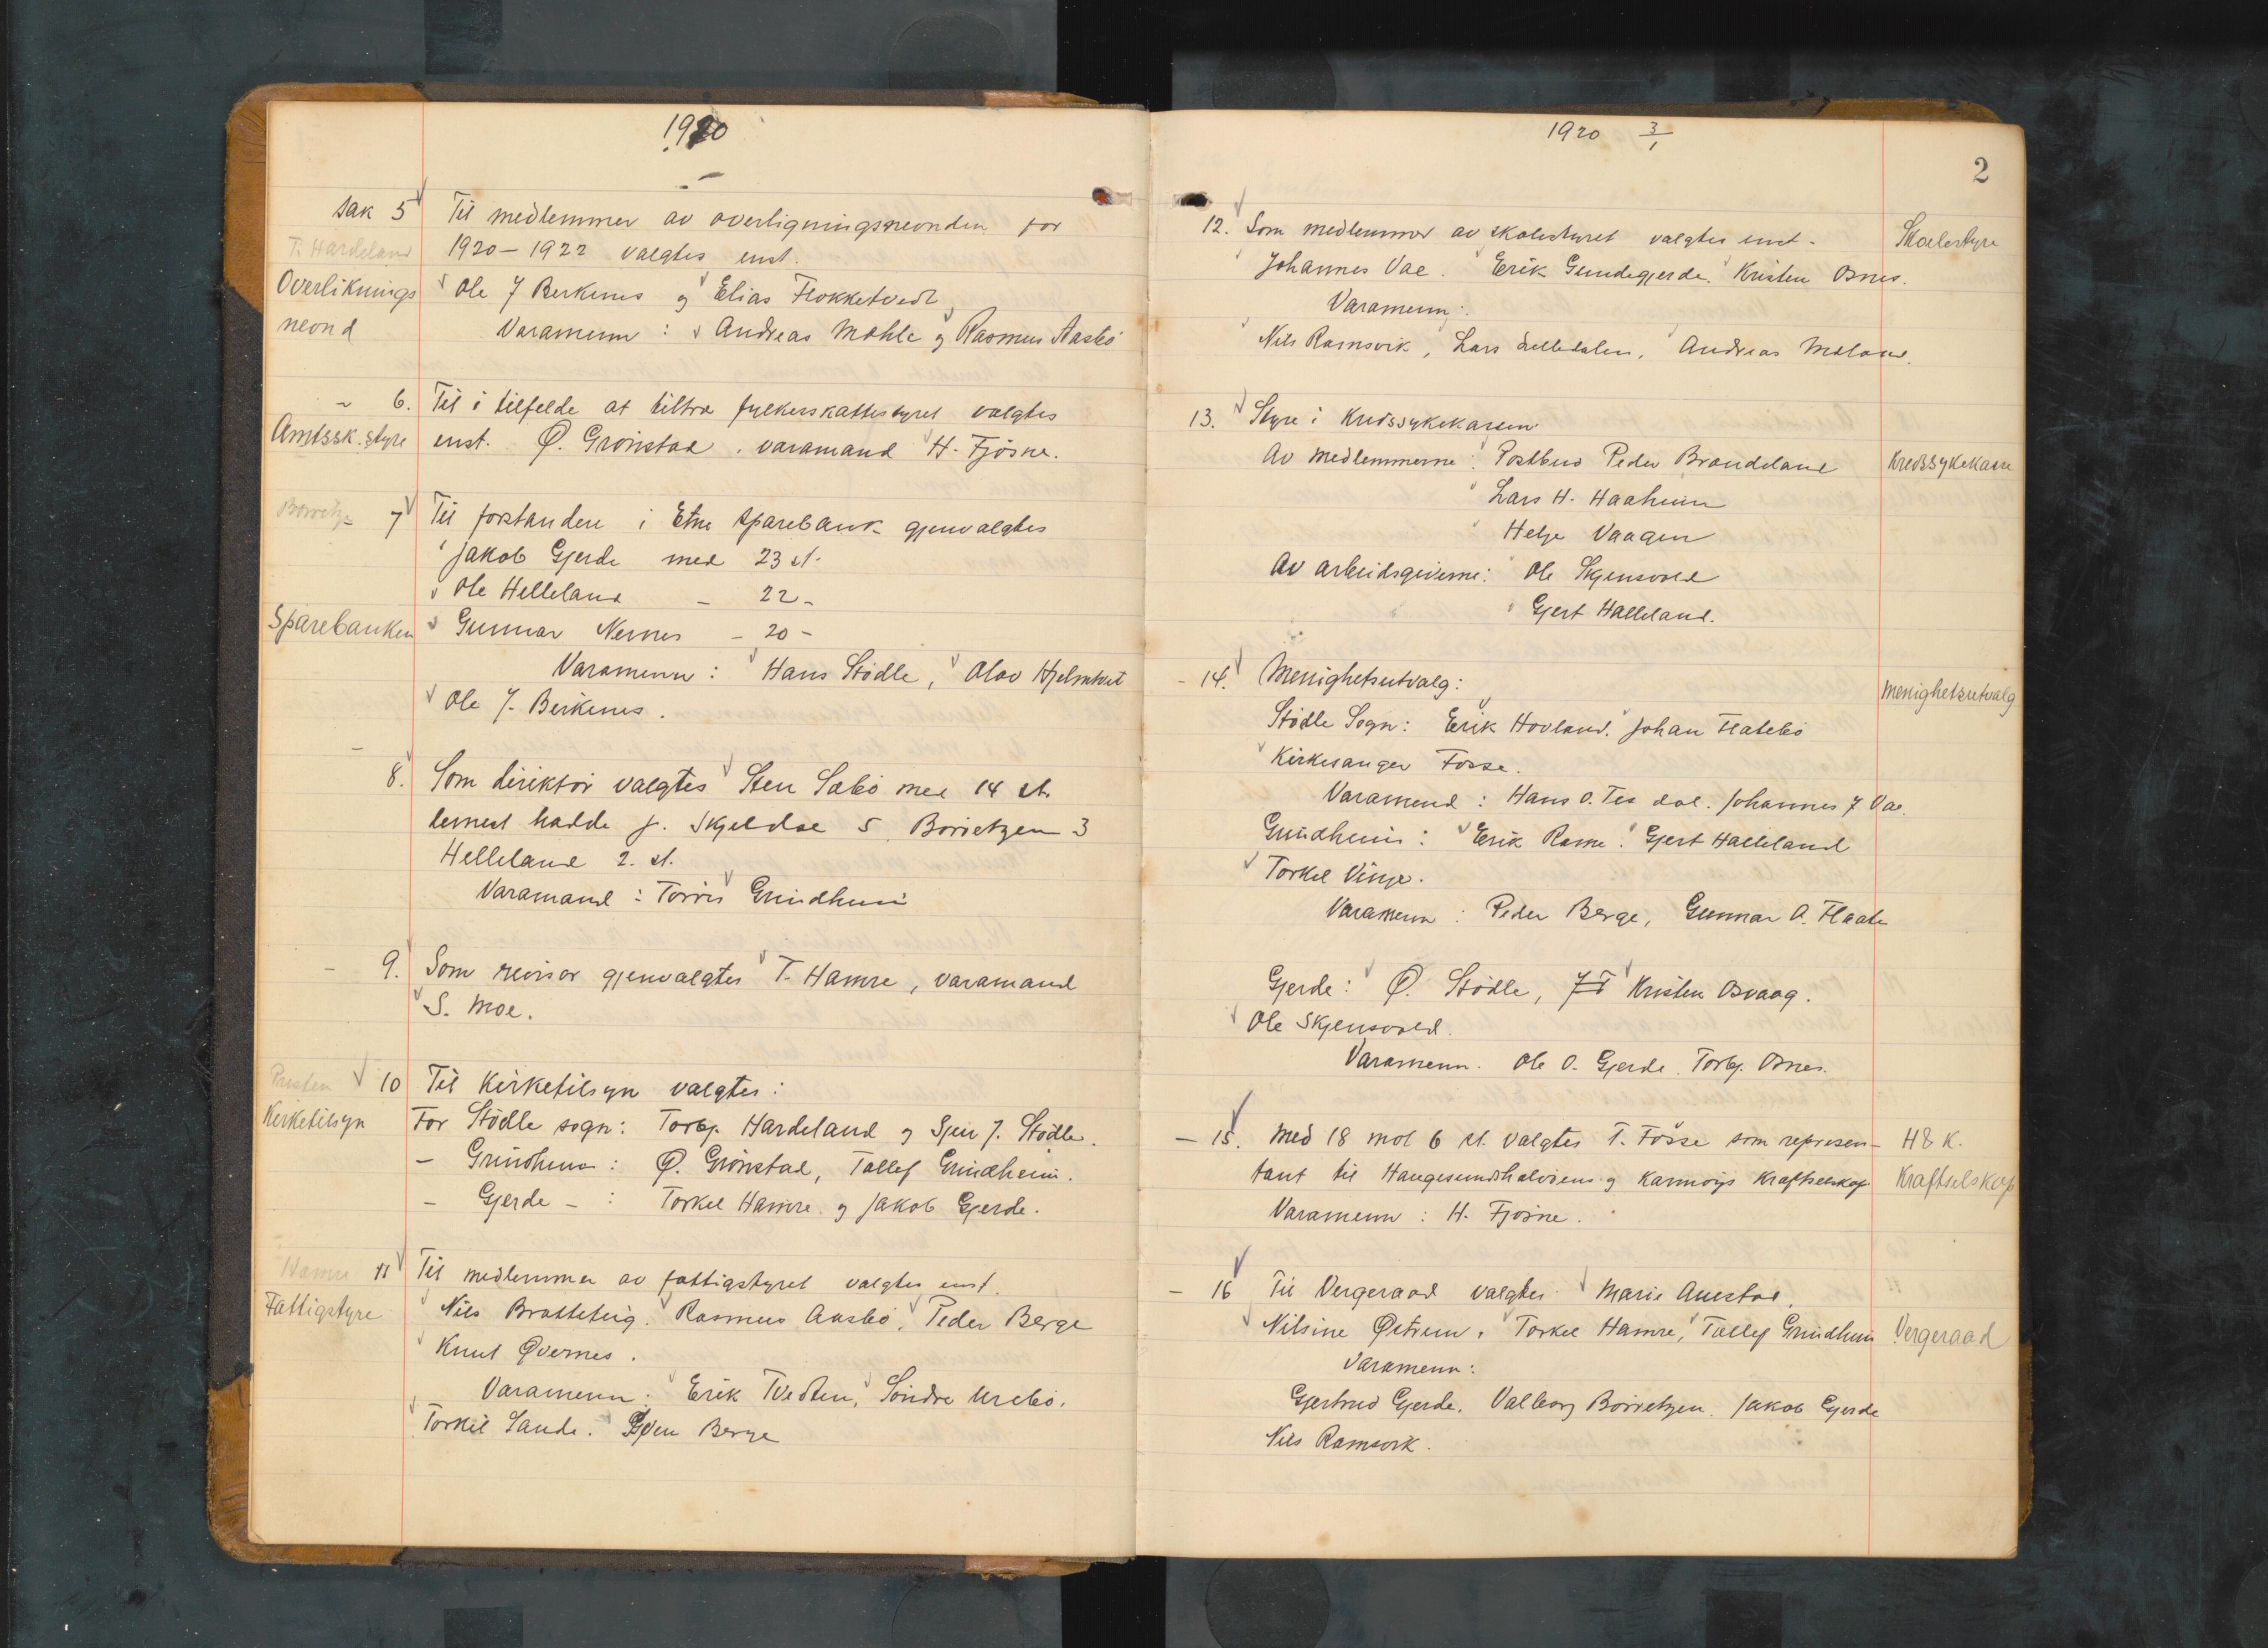 1920
Sak 5 Til medlemmer av overligningsnevnden for
T. Hardeland 1920–1922 valgtes enst.
Overliknings Ole J Berkenes og Elias Flokketvedt
nevnd Varamenn: Andreas Mæhle og Rasmus Aasbö
" 6. Til i tilfelde at tiltræ fylkesskattestyret valgtes
Amtssk.styre enst. Ø. Grönstad. varamand H. Fjösne.
7 Til forstandere i Etne Sparebank gjenvalgtes
Jakob Gjerde med 23 st.
Ole Helleland – 22 –
Sparebanken Gunnar Nernes – 20 –
Varamenn: Hans Stödle, Olav Hjelmtveit
Ole J. Berkenes.
8. Som direktör valgtes Sten Sæbö med 14 st.
dernest hadde J. Skjeldal 5 Börretzen 3
Helleland 2. st.
Varamand: Torris Grindheim
– 9. Som revisor gjenvalgtes T. Hamre, varamand
S. Moe.
Presten 10 Til Kirketilsyn valgtes:
Kirketilsyn For Stödle sogn: Torbj. Hardeland og Sven J. Stödle.
– Grindheim: Ø. Grönstad, Tallef Grindheim.
– Gjerde – : Torkel Hamre og Jakob Gjerde.
Hamre 11 Til medlemmer av fattigstyret valgtes enst.
Fattigstyre Nils Bratteteig. Rasmus Aasbö, Peder Berge
Knut Øvernes.
Varamenn: Erik Tvedten, Söndre Urebö.
Torkil Sande. Sven Berge
1920 3/1
2
12. Som medlemmer av skolestyret valgtes enst. Skolestyre
Johannes Vae. Erik Gundegjerde. Kristen Osnes.
Varamenn:
Nils Ramsvik, Lars Lelledalen, Andreas Mæland.
13. Styre i Kredssykekassen. 
Av medlemmerne: Postbud Peder Brandeland Kredssykekasse
Lars H. Haaheim
Helje Vaagen
Av arbeidsgiverne: Ole Skjensvold
Gjert Halleland.
– 14. Menighetsutvalg: Menighetsutvalg
Stödle Sogn: Erik Hovland. Johan Flatebö
Kirkesanger Fosse.
Varamend: Hans O. Tesdal. Johannes J Vae.
Grindheim: Erik Rame. Gjert Halleland
Torkel Vinje.
Varamenn: Peder Berge, Gunnar A. Flaate
Gjerde: Ø. Stödle, Kristen Osvaag.
Ole Skjensvold.
Varamenn. Ole O. Gjerde. Torbj. Osnes.
– 15. Med 18 mot 6 st. valgtes T. Fosse som represen– H & K.
tant til Haugesundshalvöens og Karmöys Kraftselskap Kraftselskap
Varamenn: H. Fjösne.
– 16 Til Vergeraad valgtes: Marie Auestad,
Nilsine Østrem. Torkel Hamre, Tallef Grindheim Vergeraad
Varamenn:
Gjertrud Gjerde. Valborg Börretzen. Jakob Gjerde
Nils Ramsvik.